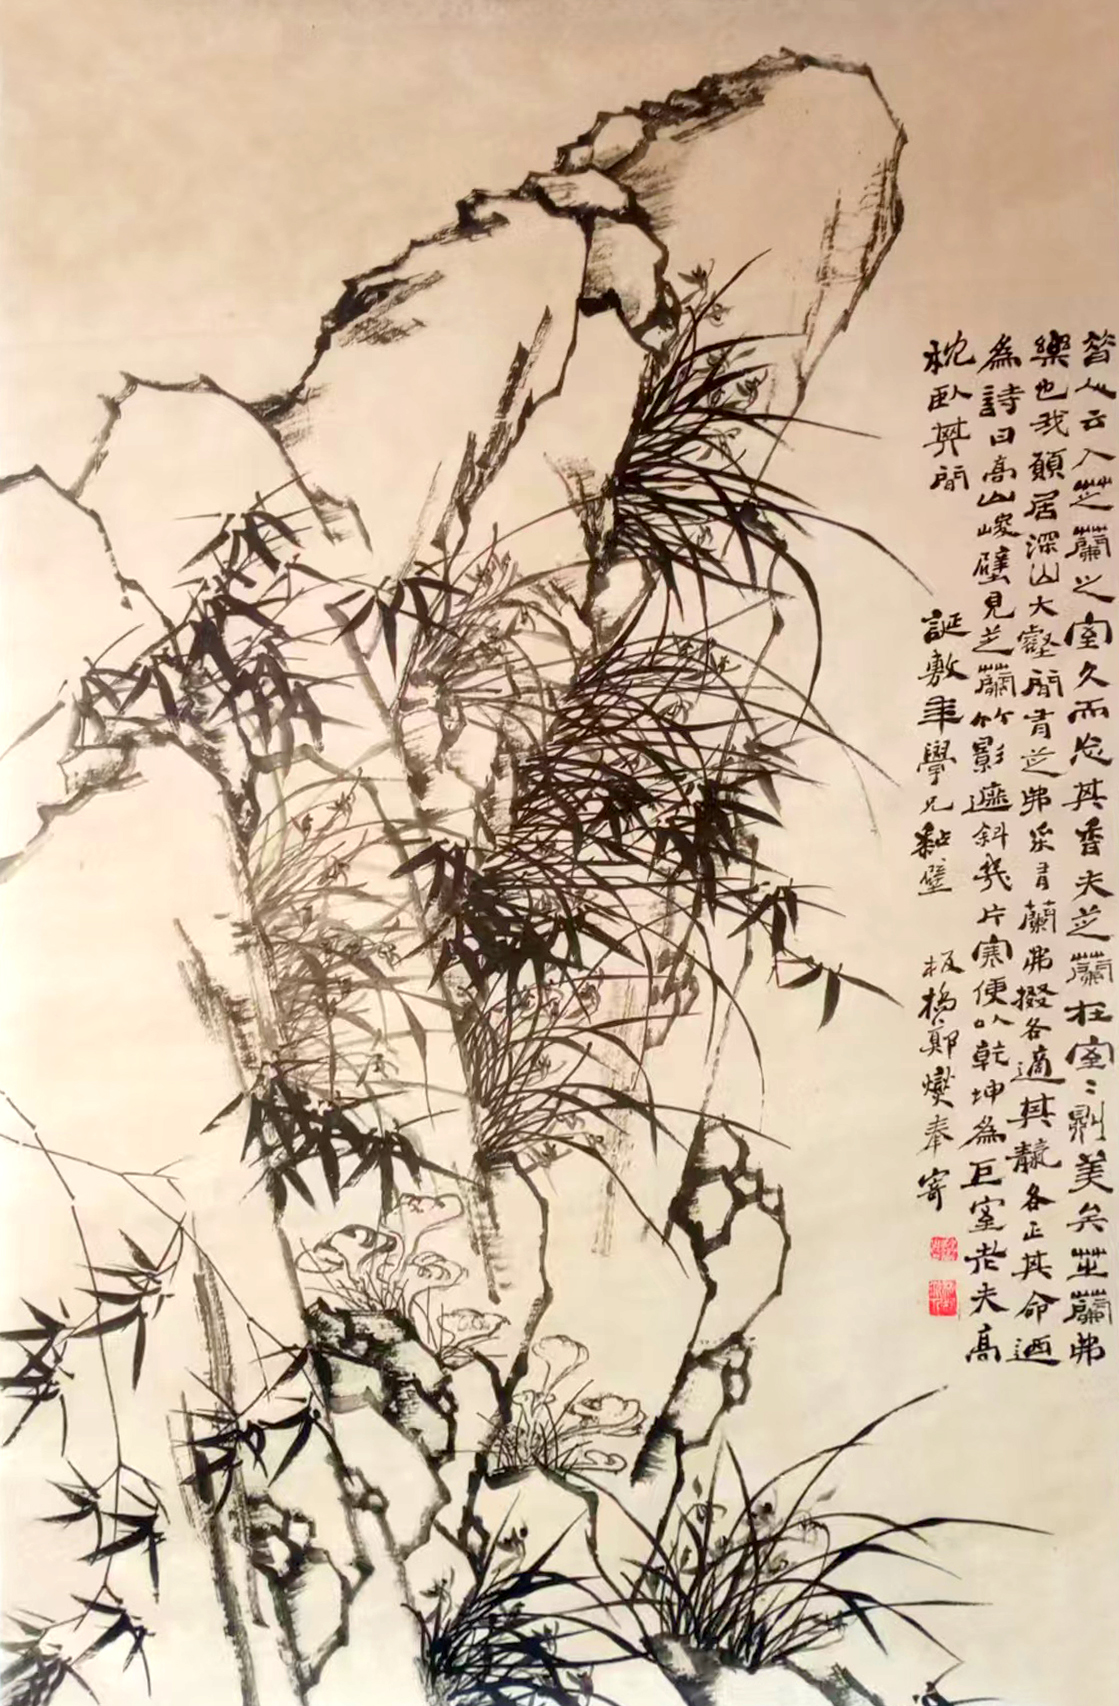 昔人云入芝蘭之室久而忘其香夫芝蘭在室室則美矣芝蘭弗
樂也我願居深山大壑間有芝弗采有蘭弗掇各適其天各正其命迺
為詩曰高山峻壁見芝蘭竹影遮斜幾片寒便以乾坤為巨室老夫高
枕臥其間
誕敷年學兄黏壁
板橋鄭燮奉寄